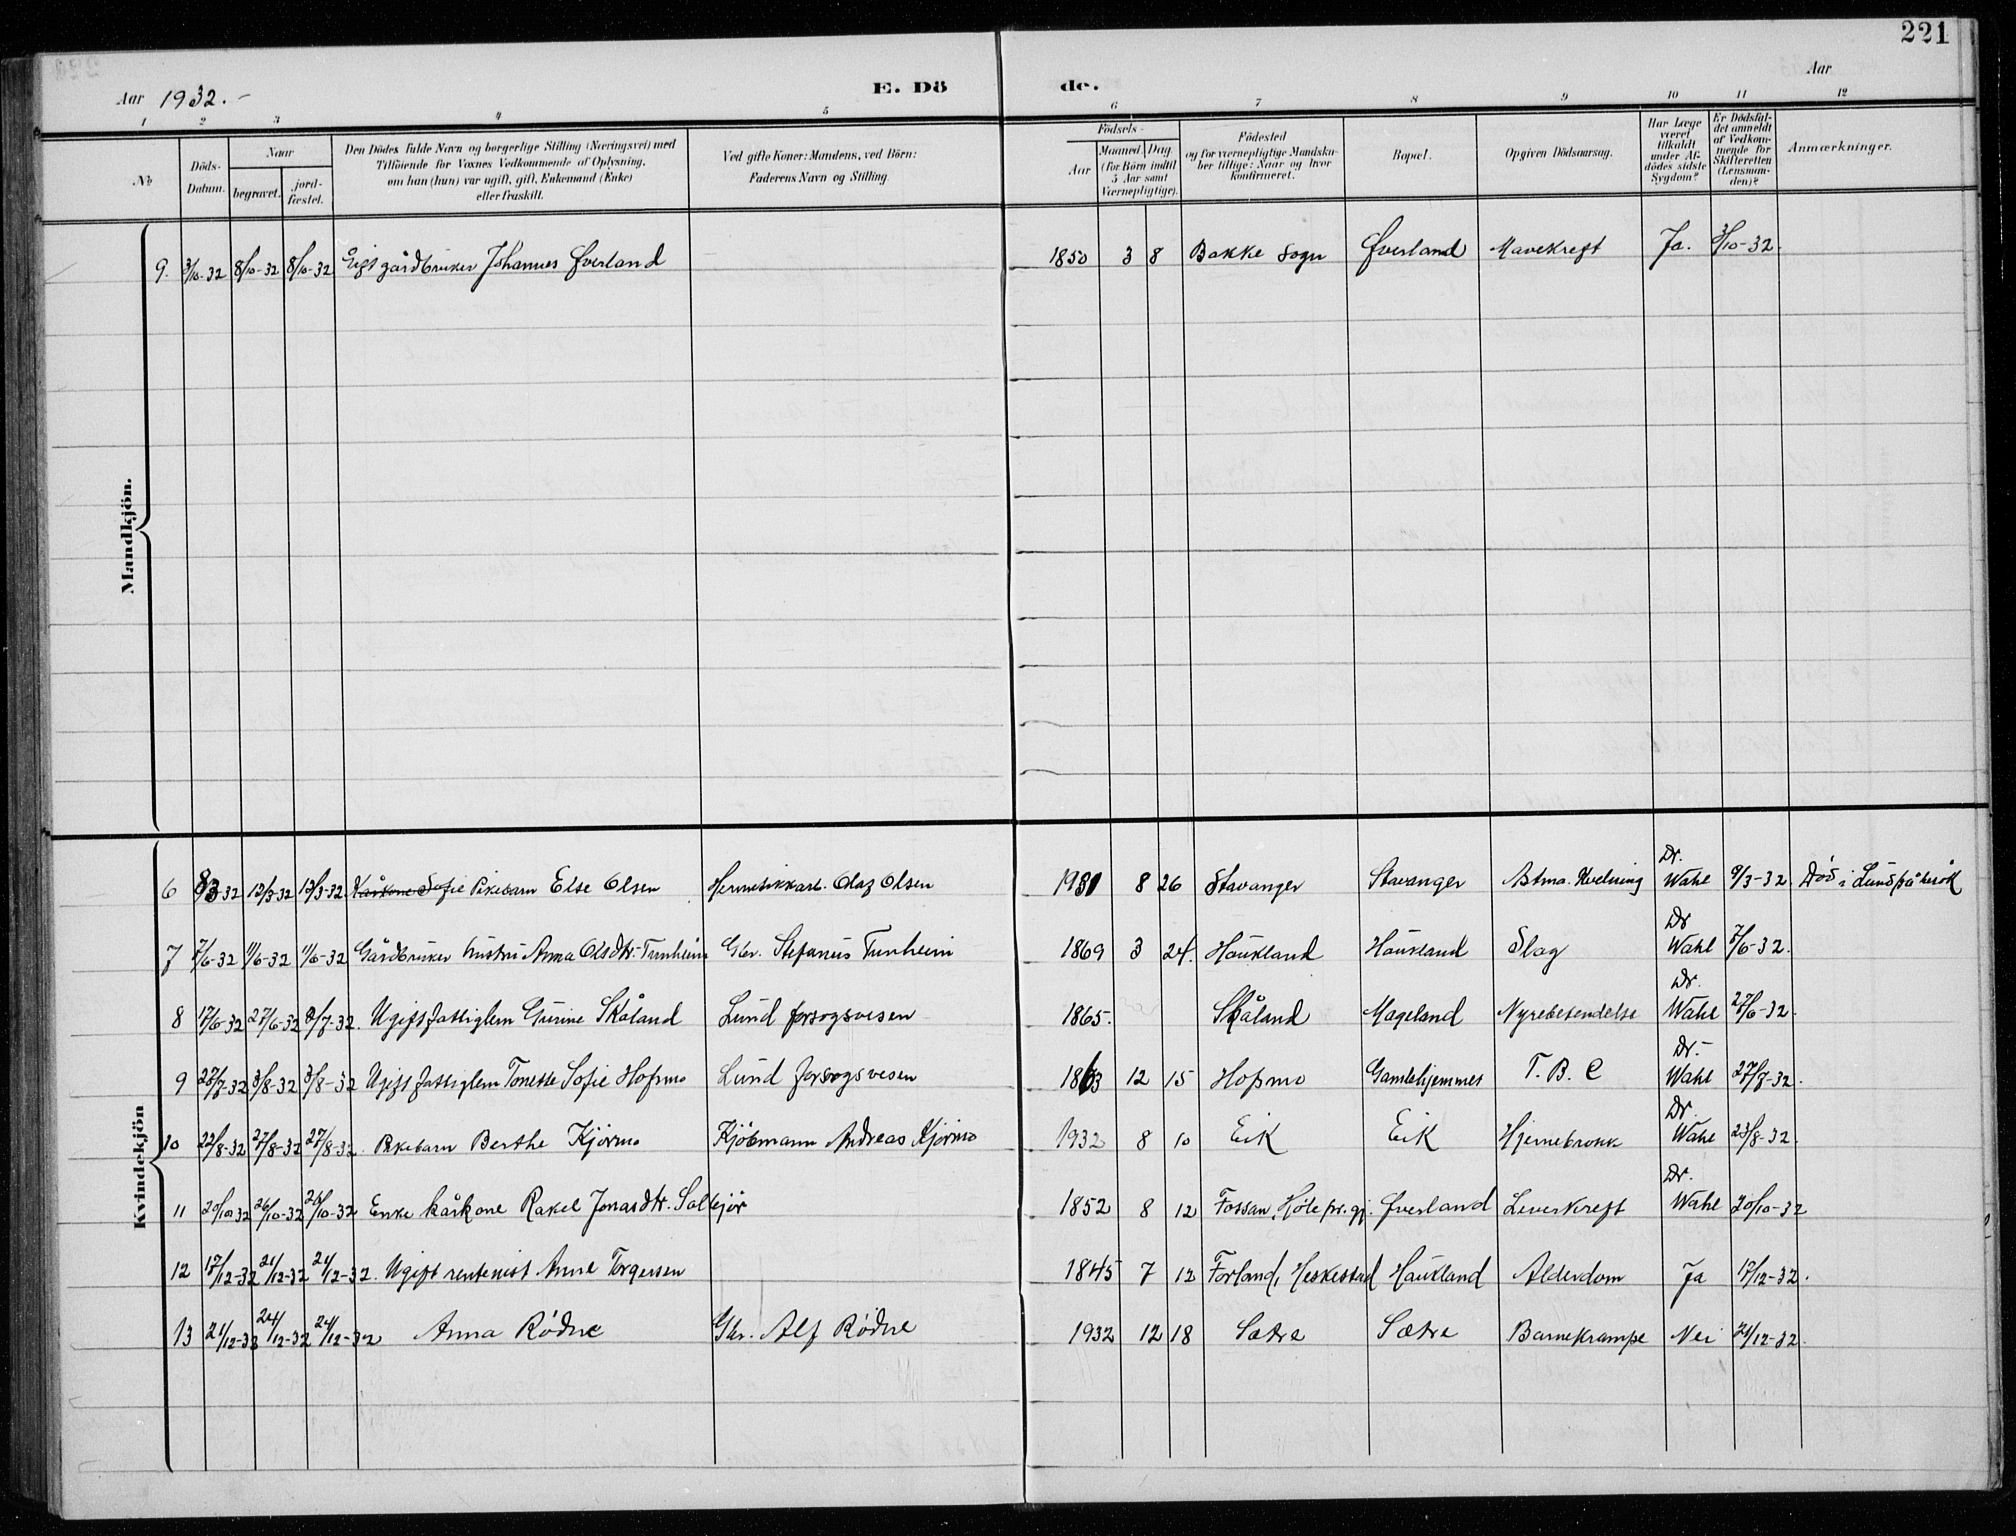 221
Aar 1932.-
E. Dö de.
Aar
1 2 3 4 5 6 7 8 9 10 11 12
No
Döds-Datum.
Naar
begravet.
jord-fæstet.
Den Dödes fulde Navn og borgerlige Stilling (Næringsvei) med
Tilföiende for Voxnes Vedkommende af Oplysning,
om han (hun) var ugift, gift, Enkemand (Enke)
eller fraskilt.
Ved gifte Koner: Mandens, ved Börn:
Faderens Navn og Stilling.
Födsels-
Aar
Maaned. Dag.
(for Börn indtil
5 Aar samt
Værnepligtige).
Födested
og for værnepligtige Mandska-
ber tillige: Naar og hvor
konfirmeret.
Bopæl.
Opgiven Dödsaarsag.
Har Læge
været
tilkaldt
under Af-
dödes sidste
Sygdom?
Er Dödsfal-
det anmeldt
af Vedkom-
mende for
Skifteretten
(Lensman-
den)?
Anmærkninger.
Mandkjön.
9. 3/10-32 8/10-32 8/10-32 Gift gårdbruker Johannes Øverland 1850 3 8 Bakke sogn Øverland Mavekreft Ja. 3/10-32.
Kvindekjön
6 8/3 32 12/3-32 12/3-32. Kårkone Sofie Pikebarn Else Olsen Hermetikkarb. Olaf Olsen 1931 8 26 Stavanger Stavanger Astma. Kvelning Dr. Wahl 9/3-32 Død i Lund på besøk
7 7/6-32 11/6-32 11/6-32 Gårdbruker hustru Anna Olsdtr. Tunheim Gbr. Stefanus Tunheim 1869 3 24. Haukland Haukland Slag Dr Wahl 7/6-32.
8 17/6-32 27/6-32 8/7-32. Ugift fattiglem Gurine Skåland Lund forsogsvesen 1865. Skåland Mageland Nyrebetendelse Dr. Wahl 27/6-32.
9 27/7-32 3/8-32 3/8-32 Ugift fattiglem Tonette Sofie Hofsmo Lund forsogsvesen 1863 12 15 Hofsmo Gamlehjemmet T. B. C Dr.- Wahl 27/7-32.
10 22/8-32 27/8-32 27/8-32. Pikebarn Berthe Kjörmo Kjöbmann Andreas Kjörmo 1932 8 10 Eik Eik Hjernebrokk Dr. Wahl 23/8-32.
11 20/10 32 26/10-32 26/10-32 Enke kårkone Rakel Jonasdtr. Saltkjör 1852 8 12 Fossan, Høle pr.gj. Øverland Leverkreft Dr. Wahl 20/10-32
12 17/12-32 21/12-32 21/12-32. Ugift rentenist Anne Torgersen 1845 7 12 Forland, Heskestad Haukland Alderdom Ja 17/12-32.
13 21/12-32 24/12-32 24/12-32 Anna Rödne Gbr. Alf Rödne 1932 12 18 Sætra Sætra Barnekrampe Nei 21/12-32.